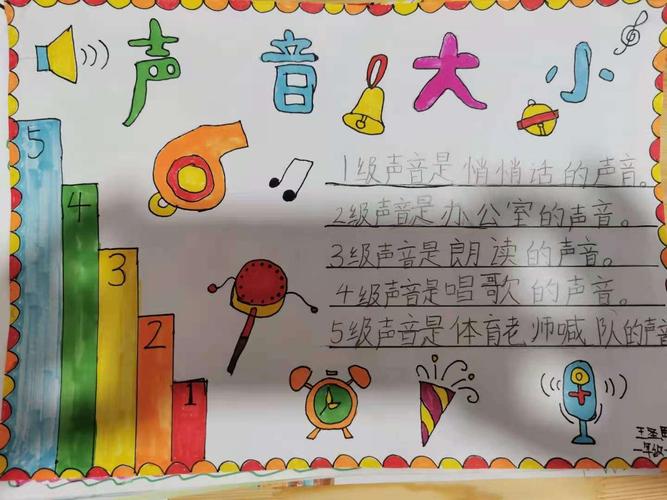 声音大小
5
4
3
2
1
1级声音是悄悄话的声音。
2级声音是办公室的声音。
3级声音是朗读的声音。
4级声音是唱歌的声音。
5级声音是体育老师喊队的声